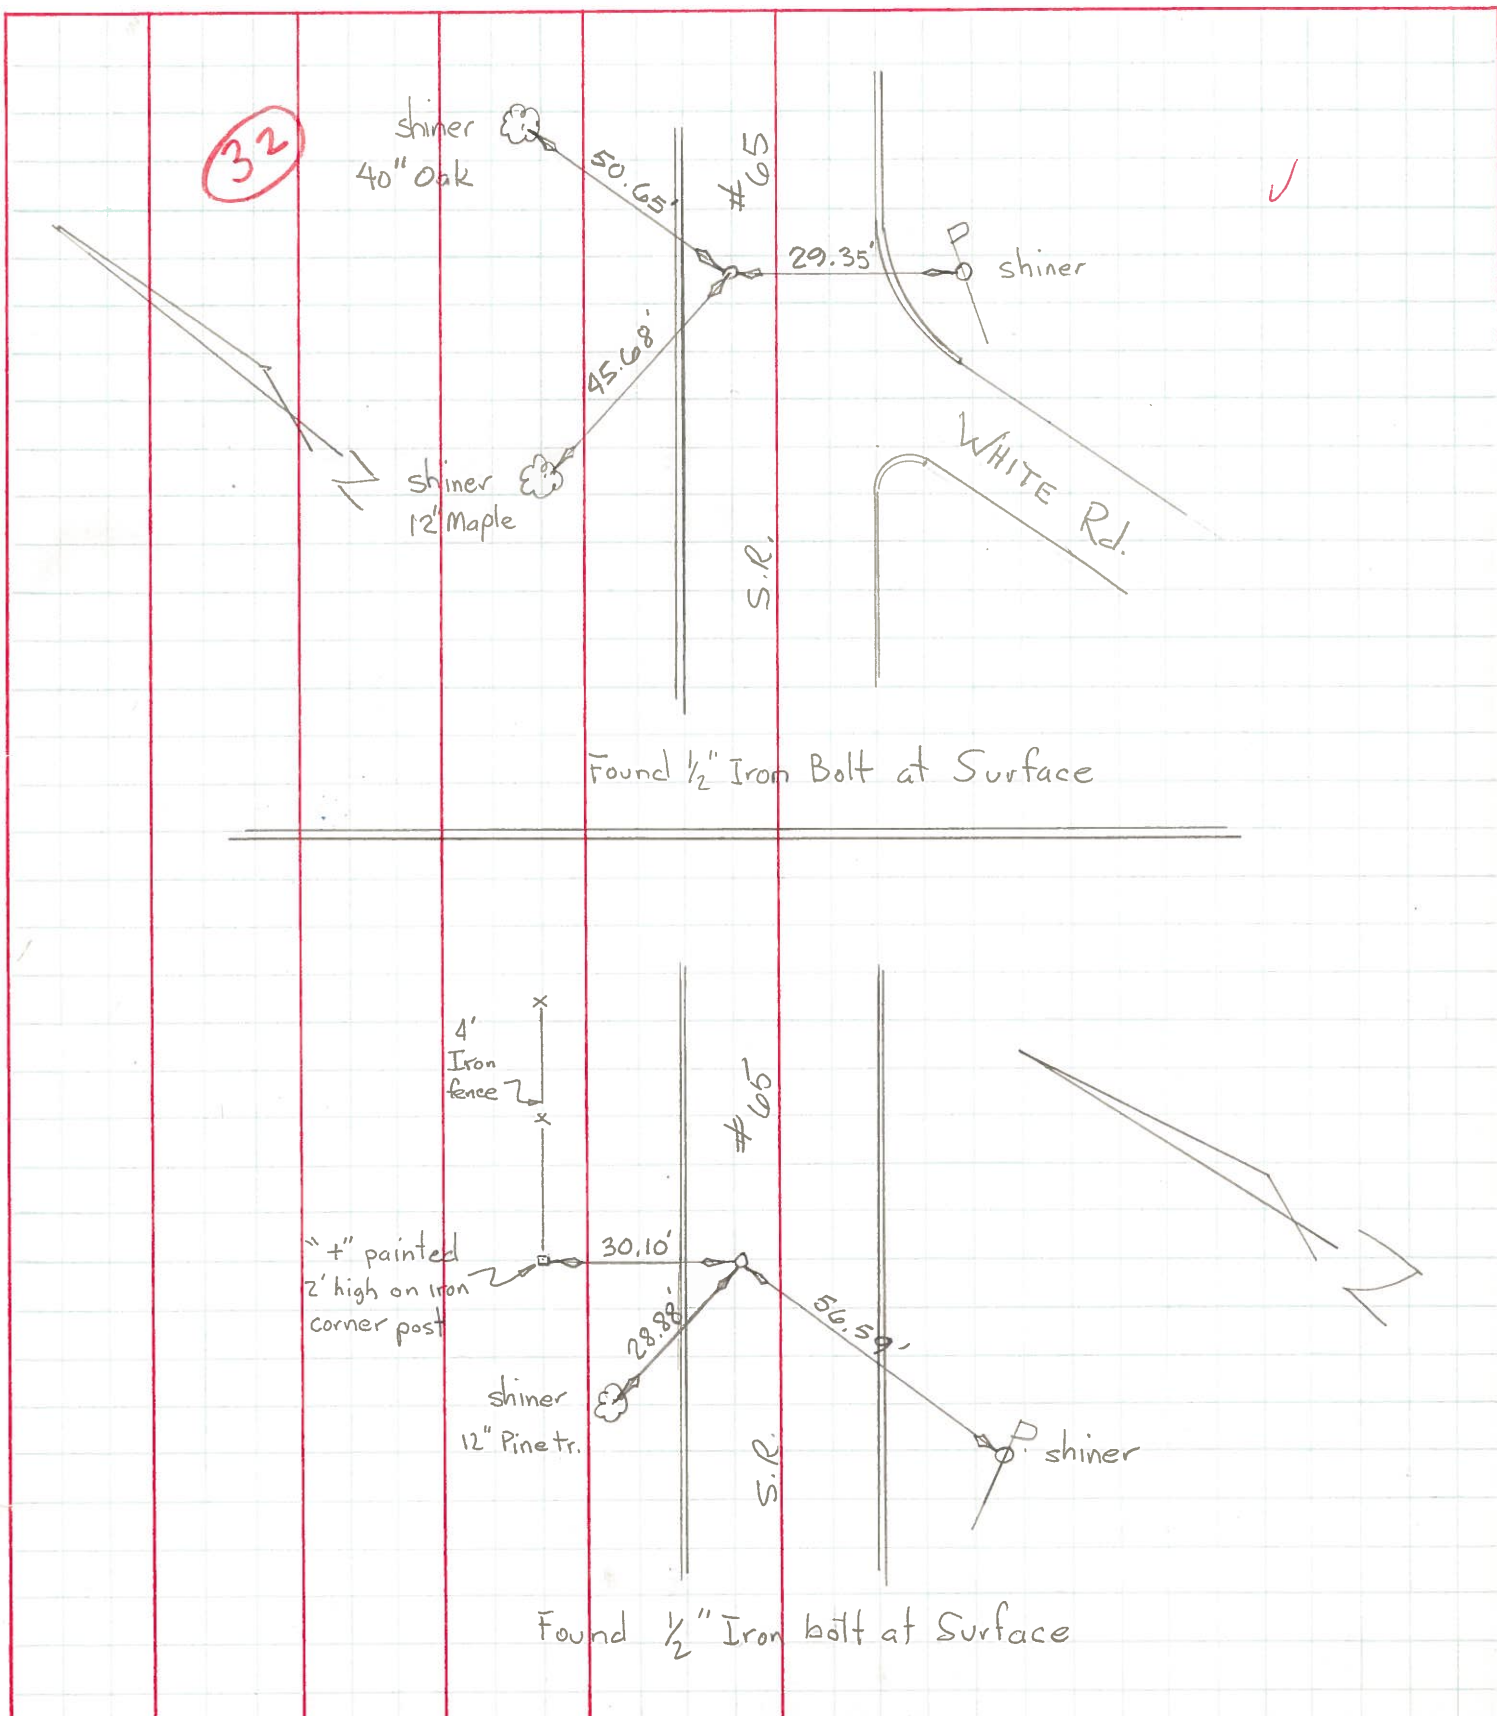 32
shiner
40" Oak
50.65'
# 65
29.35'
P
shiner
45.68'
N
shiner
12" Maple
WHITE Rd.
S.R.
Found 1/2" Iron Bolt at Surface
4'
Iron
fence
x
x
# 65
"+" painted
2' high on iron
corner post
30.10'
28.88'
56.59'
N
shiner
12" Pine tr.
P
shiner
S.R.
Found 1/2" Iron bolt at Surface